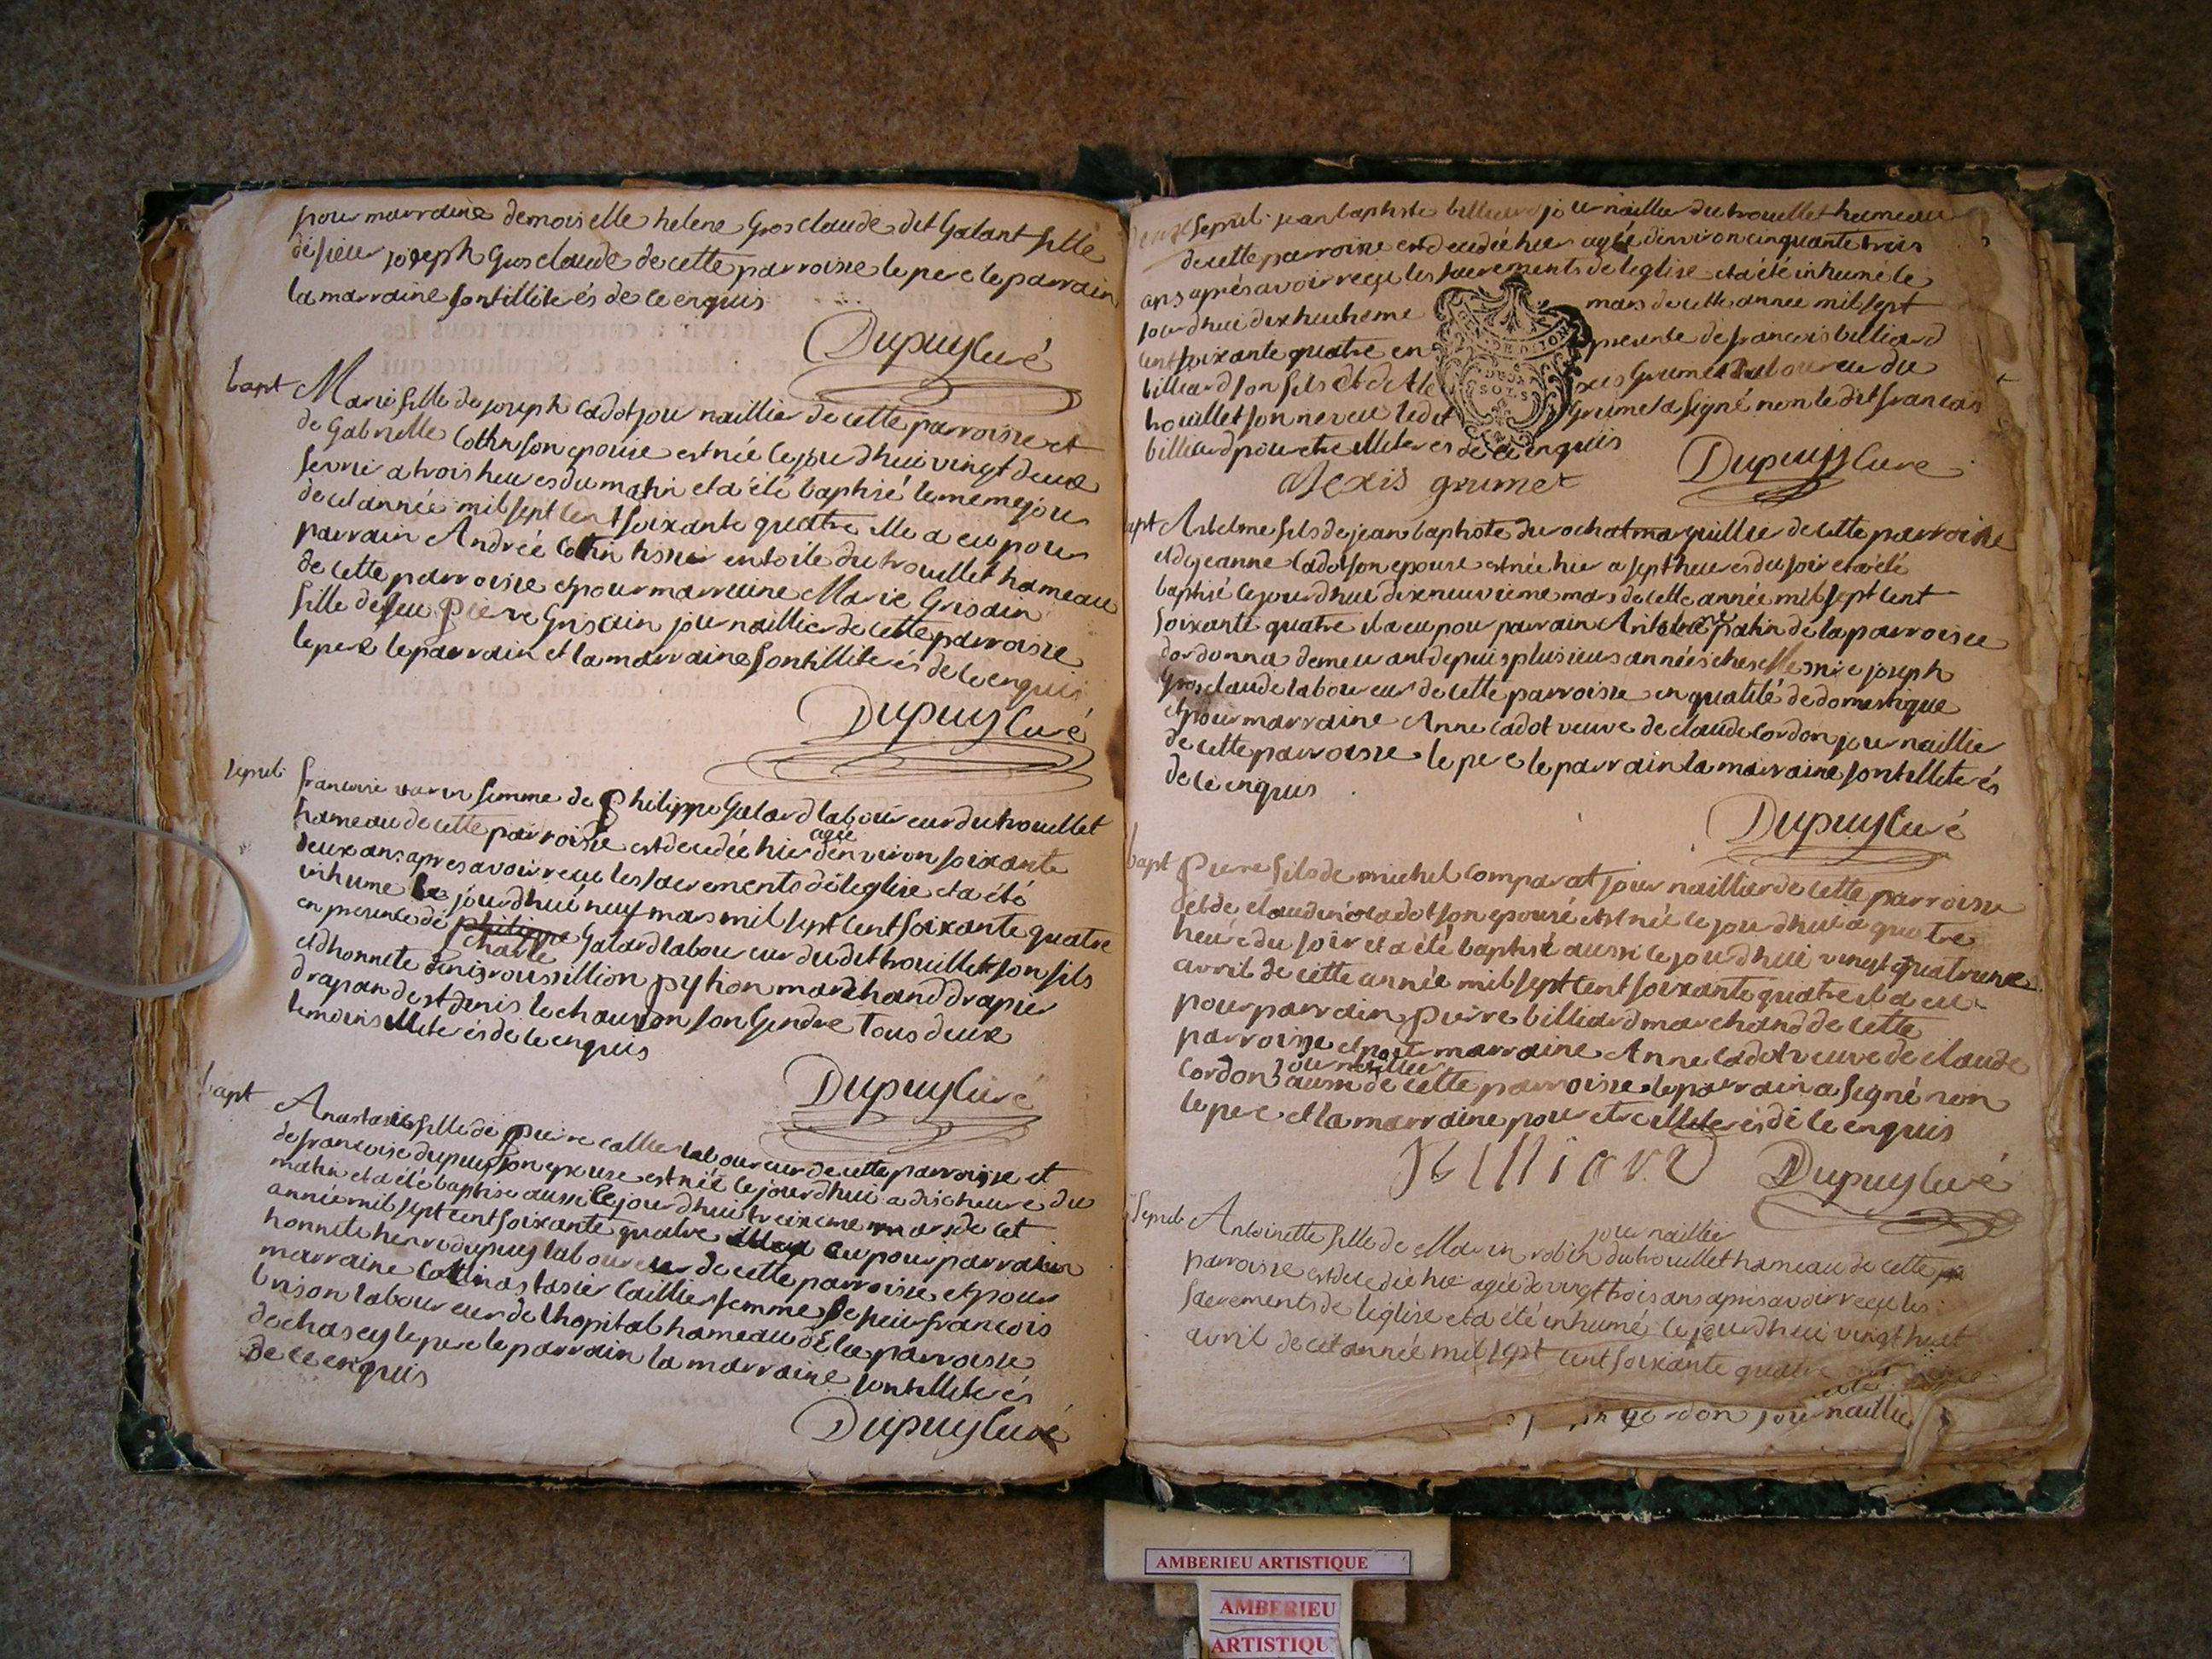 pour marraine demoiselle helene Gros claude dit Galant fille
de sieur joseph Gros claude de cette parroisse le pere le parrain
la marraine sont illiterés de ce enquis
Dupuy Curé
bapt Marie fille de joseph Cadot journaillier de cette parroisse et
de Gabrielle Cothin son epouse est née ce jourdhui vingt deux
fevrier a trois heures du matin et a été baptisé le meme jour
de cet année mil sept cent soixante quatre elle a eu pour
parrain André Cothin tisier en toile du trouillet hameau
de cette parroisse et pour marraine Marie Grisain
fille de feu pierre Grisain journaillier de cette parroisse
le pere le parrain et la marraine sont illiterés de ce enquis
Dupuy Curé
sepul. francoise femme de philippe Galard laboureur du trouillet
hameau de cette parroisse est decedée hier agée denviron soixante
deux ans apres avoir recu les sacrements de leglise et a été
inhume ce jourdhui neuf mars mil sept cent soixante quatre
en presence de philippe charle Galard laboureur dudit trouillet son fils
et dhonnete denis roussillion python marchand drapier
drapan de st denis le chausson son Gendre tous deux
temoins illiterés de ce enquis
Dupuy Curé
bapt Anastasie fille de pierre callier laboureur de cette parroisse et
de francoise dupuy son epouse est née ce jourdhui a dis heure du
matin et a été baptise aussi ce jourdhui treizieme mars de cet
année mil sept cent soixante quatre eu pour parrain
honnete henri dupuy laboureur de cette parroisse et pour
marraine Anastasie Caillier femme de francois
brison laboureur de lhopital hameau de la parroisse
de chasey le pere le parrain la marraine sont illiterés
de ce enquis
Dupuy Curé
Sepul. jean baptiste billiard journaillier du trouillet hameau
de cette parroisse est decedé hier agée denviron cinquante trois
ans aprés avoir reçu les sacrements de leglise et a été inhumé le
jourdhui dixhuitieme mars de cette année mil sept
cent soixante quatre en presence de francois billiard
billiard son fils et de Ale xis Grumet laboureur du
trouillet son neveu ledit Grumet a signé non le dit francois
billiard pour etre illiterés de ce enquis
Alexis grumet Dupuy Curé
bapt Antelme fils de jean baptiste durochat marguillier de cette parroisse
et de jeanne Cadot son epouse est née hier a sept heures du soir et a été
baptisé ce jourdhui dixneuvieme mars de cette année mil sept cent
soixante quatre il a eu pour parrain patin de la parroisse
dordonnas demeurant depuis plusieurs années ches joseph
Gros claude laboureur de cette parroisse en qualité de domestique
et pour marraine Anne Cadot veuve de claude Cordon journaillier
de cette parroisse le pere le parrain la marraine sont illiterés
de ce enquis
Dupuy Curé
bapt pierre fils de michel Comparat journaillier de cette parroisse
et de claudine Cadot son epouse est né ce jourdhui a quatre
heure du soir et a été baptisé aussi ce jourdhui vingt quatrieme
avril de cette année mil sept cent soixante quatre il a eu
pour parrain pierre billiard marchand de cette
parroisse et pour marraine Anne Cadot veuve de claude
Cordon journaillier aussi de cette parroisse le parrain a signé non
le pere et la marraine pour etre illiterés de ce enquis
billiard Dupuy Curé
Sepul. Antoinette fille de Marin robin journaillier du trouillet hameau de cette
parroisse est decedée hier agée de vingt trois ans apres avoir reçu les
sacrements de leglise et a été inhumé ce jourdhui vingt huit
avril de cet année mil sept cent soixante quatre
journaillier
AMBERIEU ARTISTIQUE
AMBERIEU
ARTISTIQU